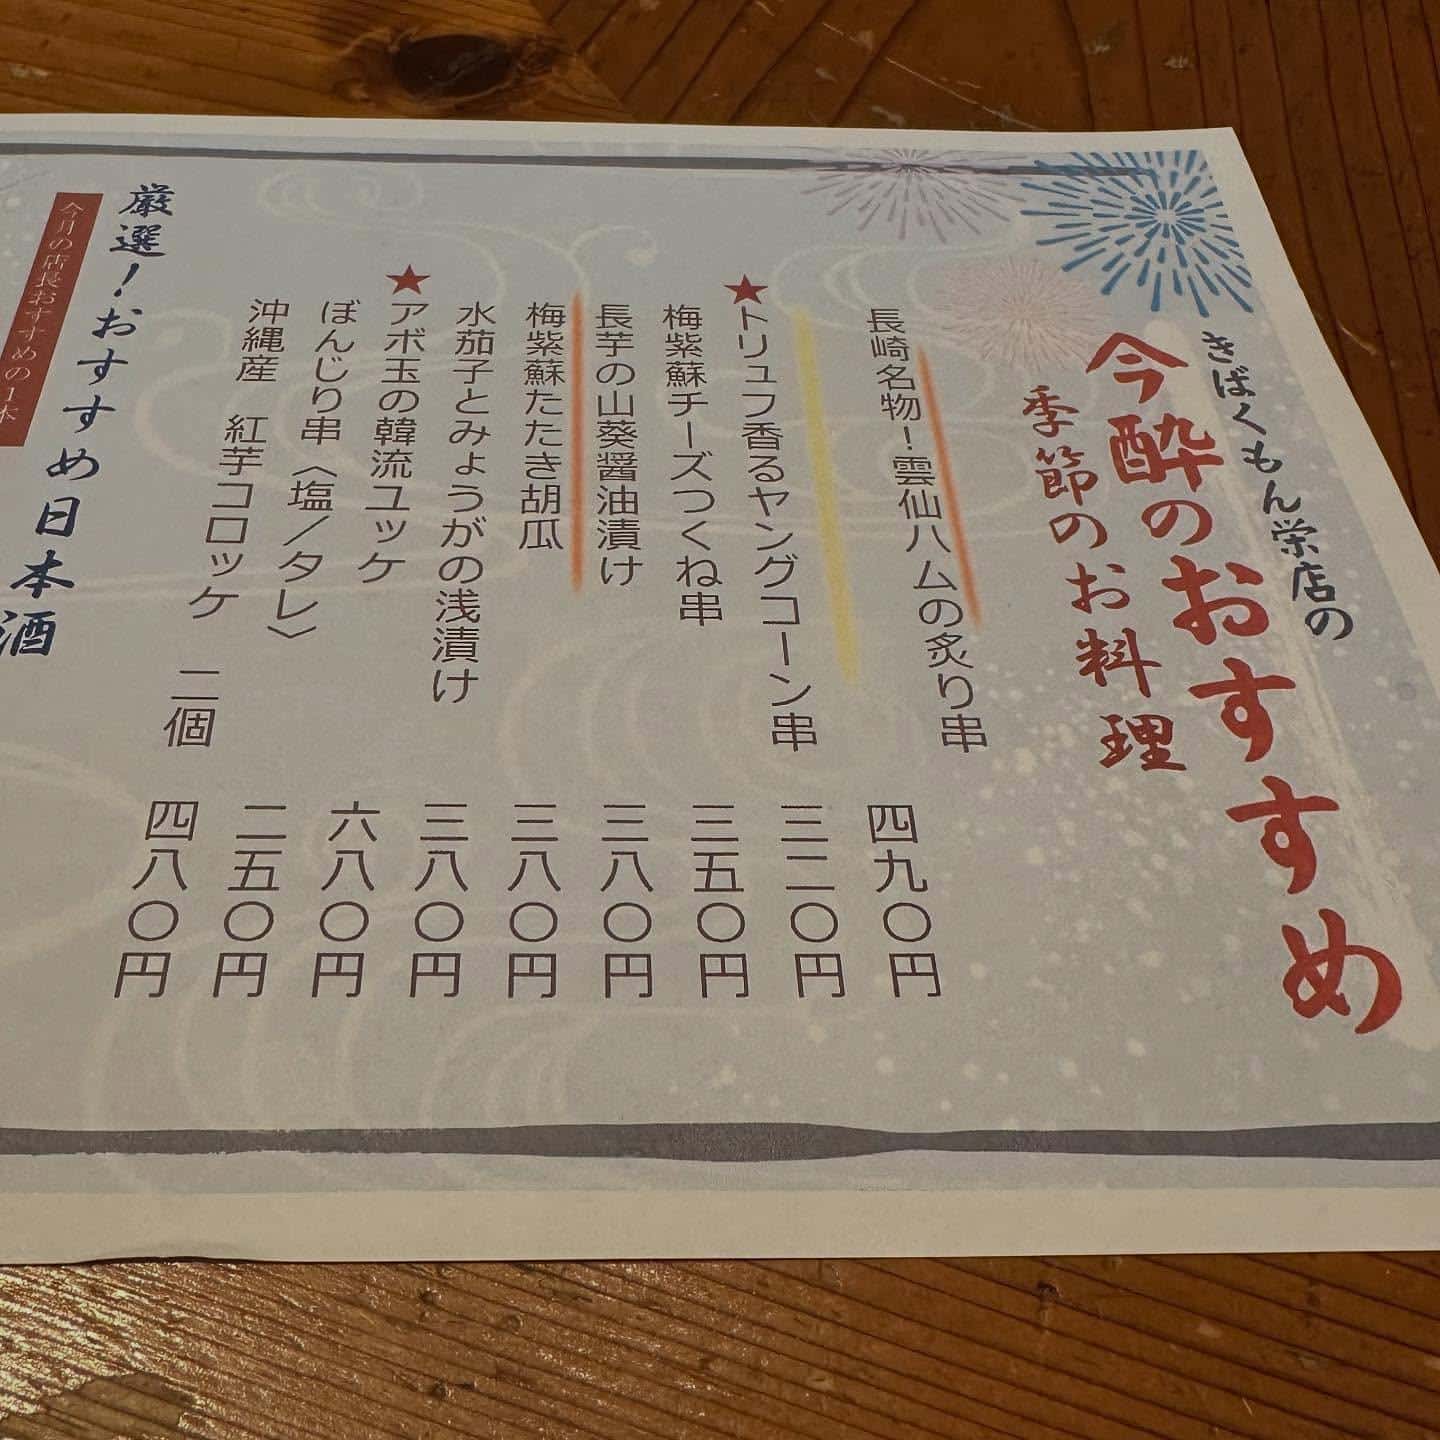 きばくもん栄店の
今酔のおすすめ
季節のお料理
長崎名物！雲仙ハムの炙り串 四九〇円
★トリュフ香るヤングコーン串 三二〇円
梅紫蘇チーズつくね串 三五〇円
長芋の山葵醤油漬け 三八〇円
梅紫蘇たたき胡瓜 三八〇円
水茄子とみょうがの浅漬け 三八〇円
★アボ玉の韓流ユッケ 六八〇円
ぼんじり串〈塩／タレ〉 二五〇円
沖縄産 紅芋コロッケ 二個 四八〇円
厳選！おすすめ日本酒
今月の店長おすすめの1本